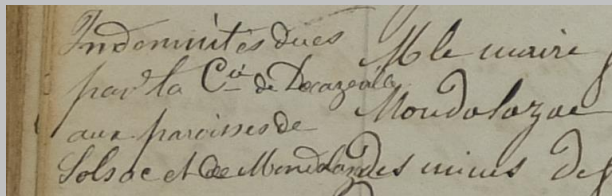 Indemnités dues
par la Cie de Decazeville
aux paroisses de
Solsac et de Mondala
M le maire
Mondalazac
des mines de